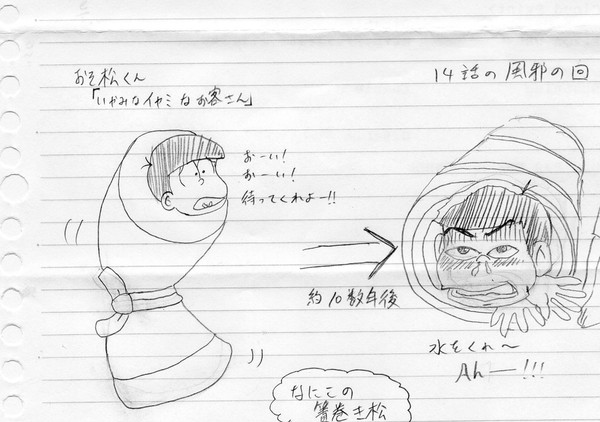 おそ松くん
「いやみなイヤミなお客さん」
14話の風邪の回
おーい!
おーい!
待ってくれよー!!
約10数年後
水をくれ〜
Ahー!!!
なにこの
簀巻き松